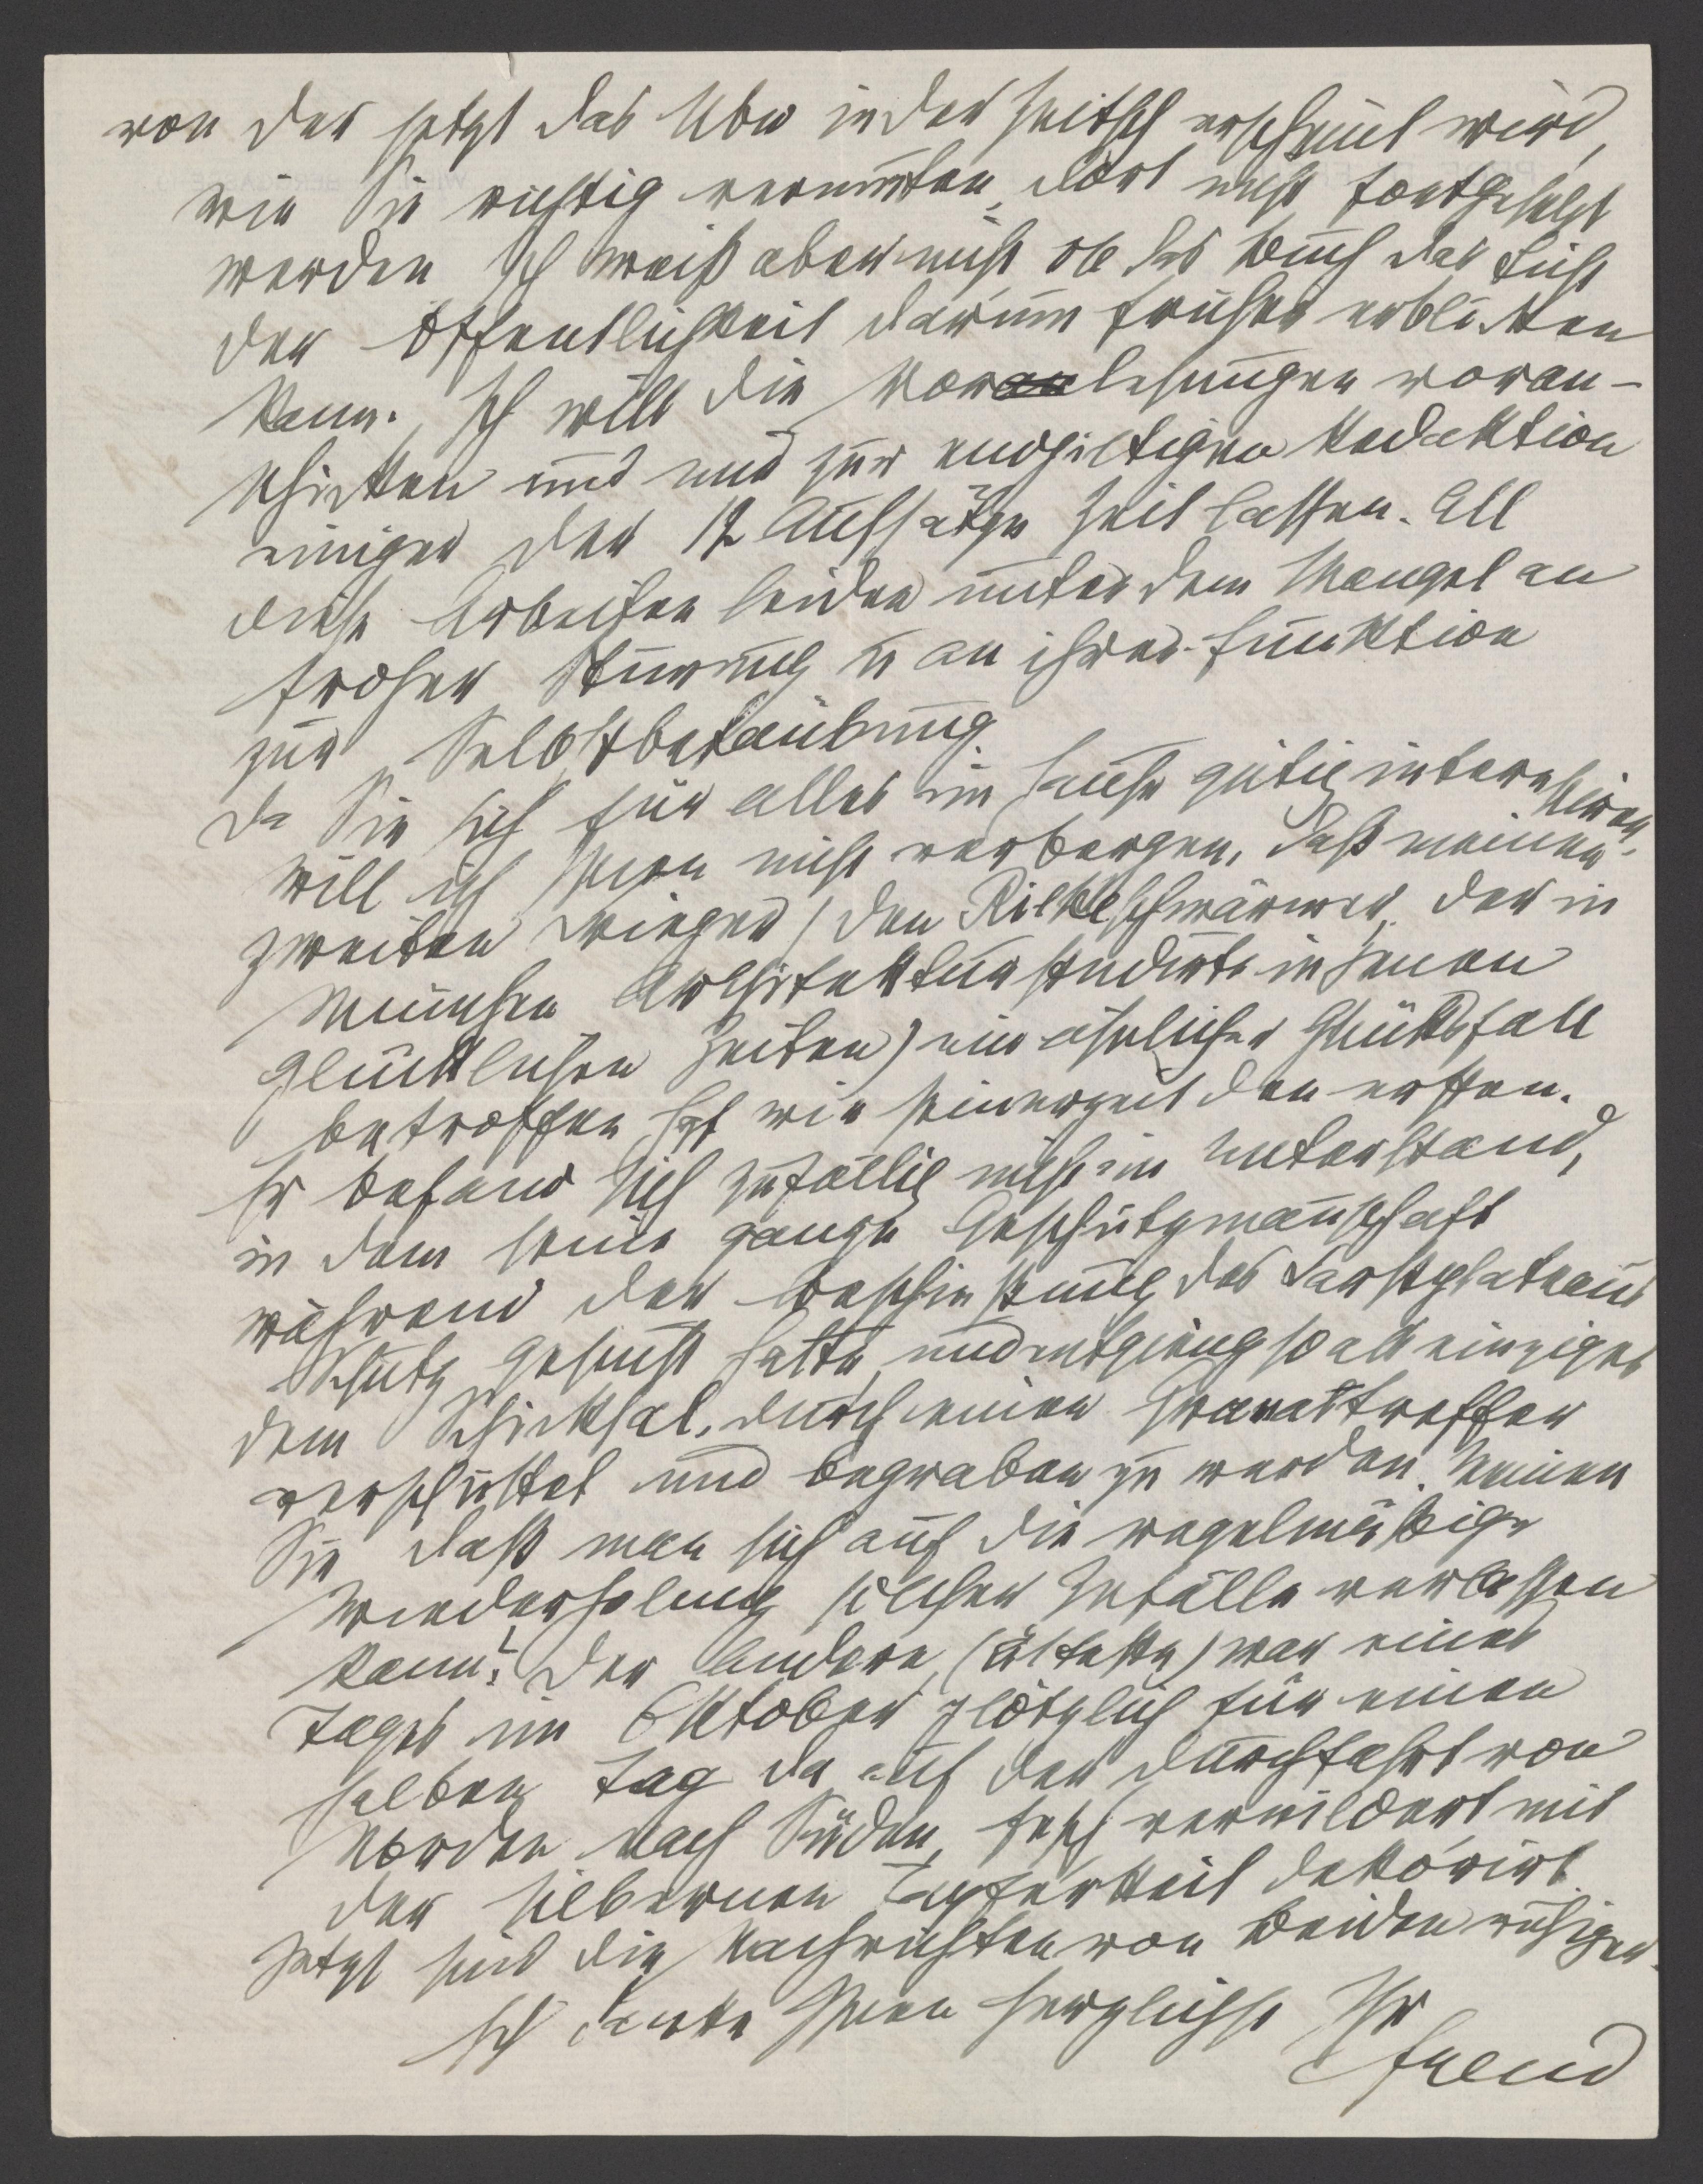 von der jetzt das Ubw in der Zeitsch erscheint wird,
wie Sie richtig vermuten, dort nicht fortgesetzt
werden. Ich weiß aber nicht ob das Buch das Licht
der Öffentlichkeit darum früher erblicken
kann. Ich will die Vorlesungen voran-
schicken und mir zur endgiltigen Redaktion
einiger der 12 Aufsätze Zeit lassen. All
diese Arbeiten leiden unter dem Mangel an
froher Stimmung u an ihrer Funktion
zur Selbstbetäubung
Da Sie sich für alles im Hause gütig interessiren,
will ich Ihnen nicht verbergen, daß meinen
zweiten Krieger (den Rilkeschwärmer, der in
München Architektur studirte in jenen
glücklichen Zeiten) ein ähnlicher Glücksfall
betroffen hat wie seinerzeit den ersten.
Er befand sich zufällig nicht im Unterstand,
in dem seine ganze Geschützmannschaft
während der Beschießung des Karstplateaus
Schutz gesucht hatte, und entgieng so als einziger
dem Schicksal, durch einen Granattreffer
verschüttet und begraben zu werden. Meinen
Sie daß man sich auf die regelmäßige
Wiederholung solcher Zufälle verlassen
kann? Der Andere (älteste) war eines
Tages im Oktober plötzlich für einen
halben Tag da auf der Durchfahrt von
Norden nach Süden, fesch verwildert mit
der silbernen Tapferkeit dekorirt.
Jetzt sind die Nachrichten von beiden ruhiger.
Ich danke Ihnen herzlichst Ihr
Freud